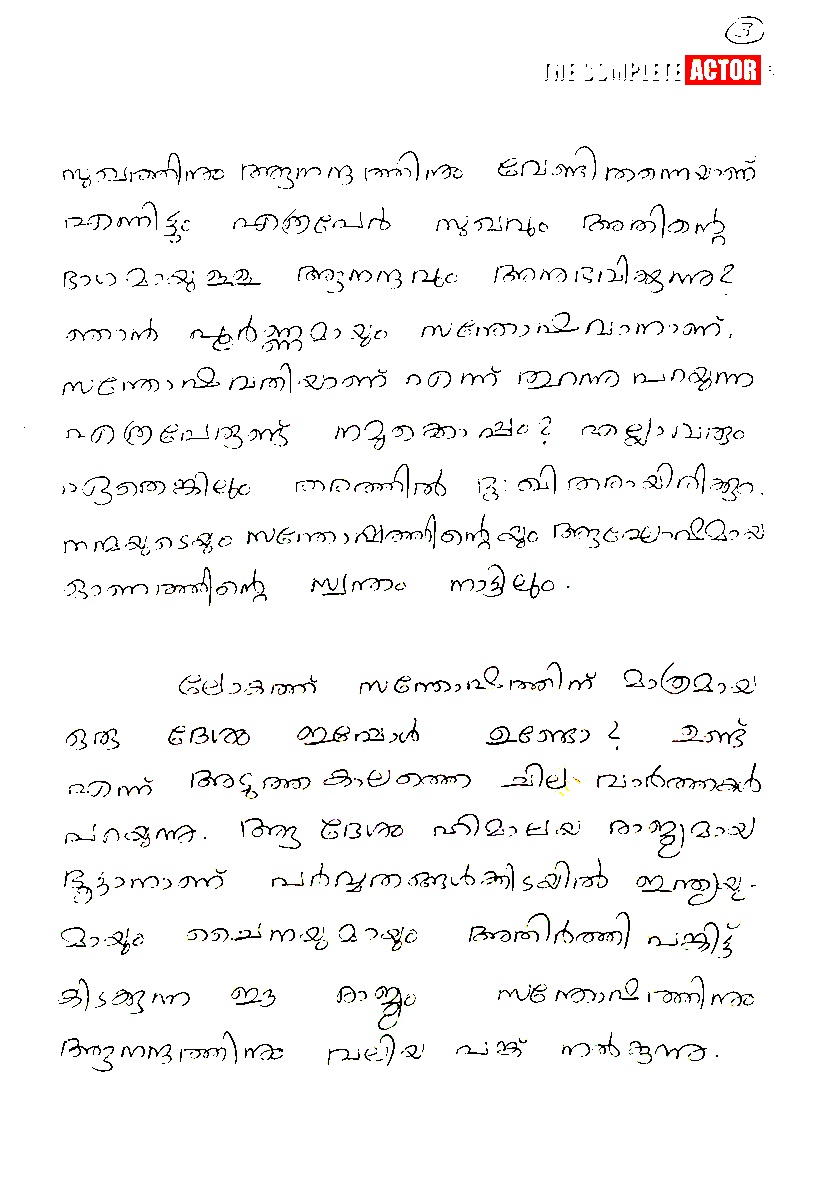 3
THE COMPLETE ACTOR
സുഖത്തിനും ആനന്ദത്തിനും വേണ്ടിത്തന്നെയാണ്
എന്നിട്ടും എത്രപേർ സുഖവും അതിന്റെ
ഭാഗമായുള്ള ആനന്ദവും അനുഭവിക്കുന്നു?
ഞാൻ പൂർണ്ണമായും സന്തോഷവാനാണ്,
സന്തോഷവതിയാണ് എന്ന് തുറന്നു പറയുന്ന
എത്രപേരുണ്ട് നമുക്കൊപ്പം? എല്ലാവരും
ഏതെങ്കിലും തരത്തിൽ ദുഃഖിതരായിരിക്കും.
നന്മയുടെയും സന്തോഷത്തിന്റെയും ആഘോഷമായ
ഓണത്തിന്റെ സ്വന്തം നാട്ടിലും.
ലോകത്ത് സന്തോഷത്തിന് മാത്രമായ
ഒരു ദേശം ഇപ്പോൾ ഉണ്ടോ? ഉണ്ട്
എന്ന് അടുത്ത കാലത്തെ ചില വാർത്തകൾ
പറയുന്നു. ആ ദേശം ഹിമാലയ രാജ്യമായ
ഭൂട്ടാനാണ് പർവ്വതങ്ങൾക്കിടയിൽ ഇന്ത്യയു-
മായും ചൈനയുമായും അതിർത്തി പങ്കിട്ട്
കിടക്കുന്ന ഈ രാജ്യം സന്തോഷത്തിനും
ആനന്ദത്തിനും വലിയ പങ്ക് നൽകുന്നു.